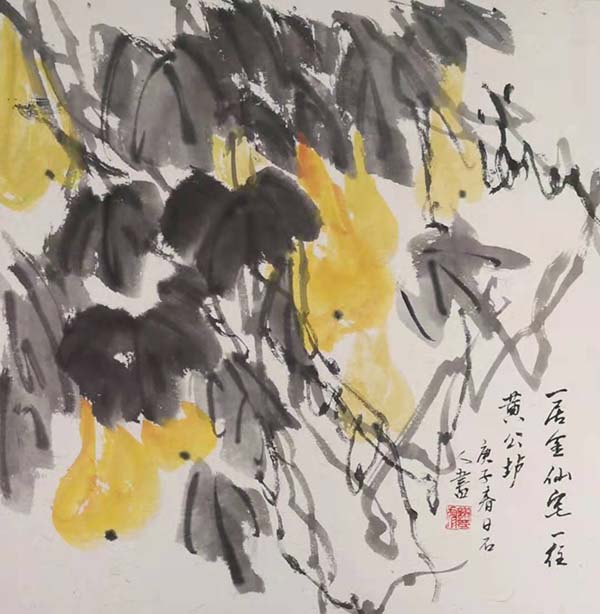 一居金仙宅一住
黄公垆
庚子春日石
人